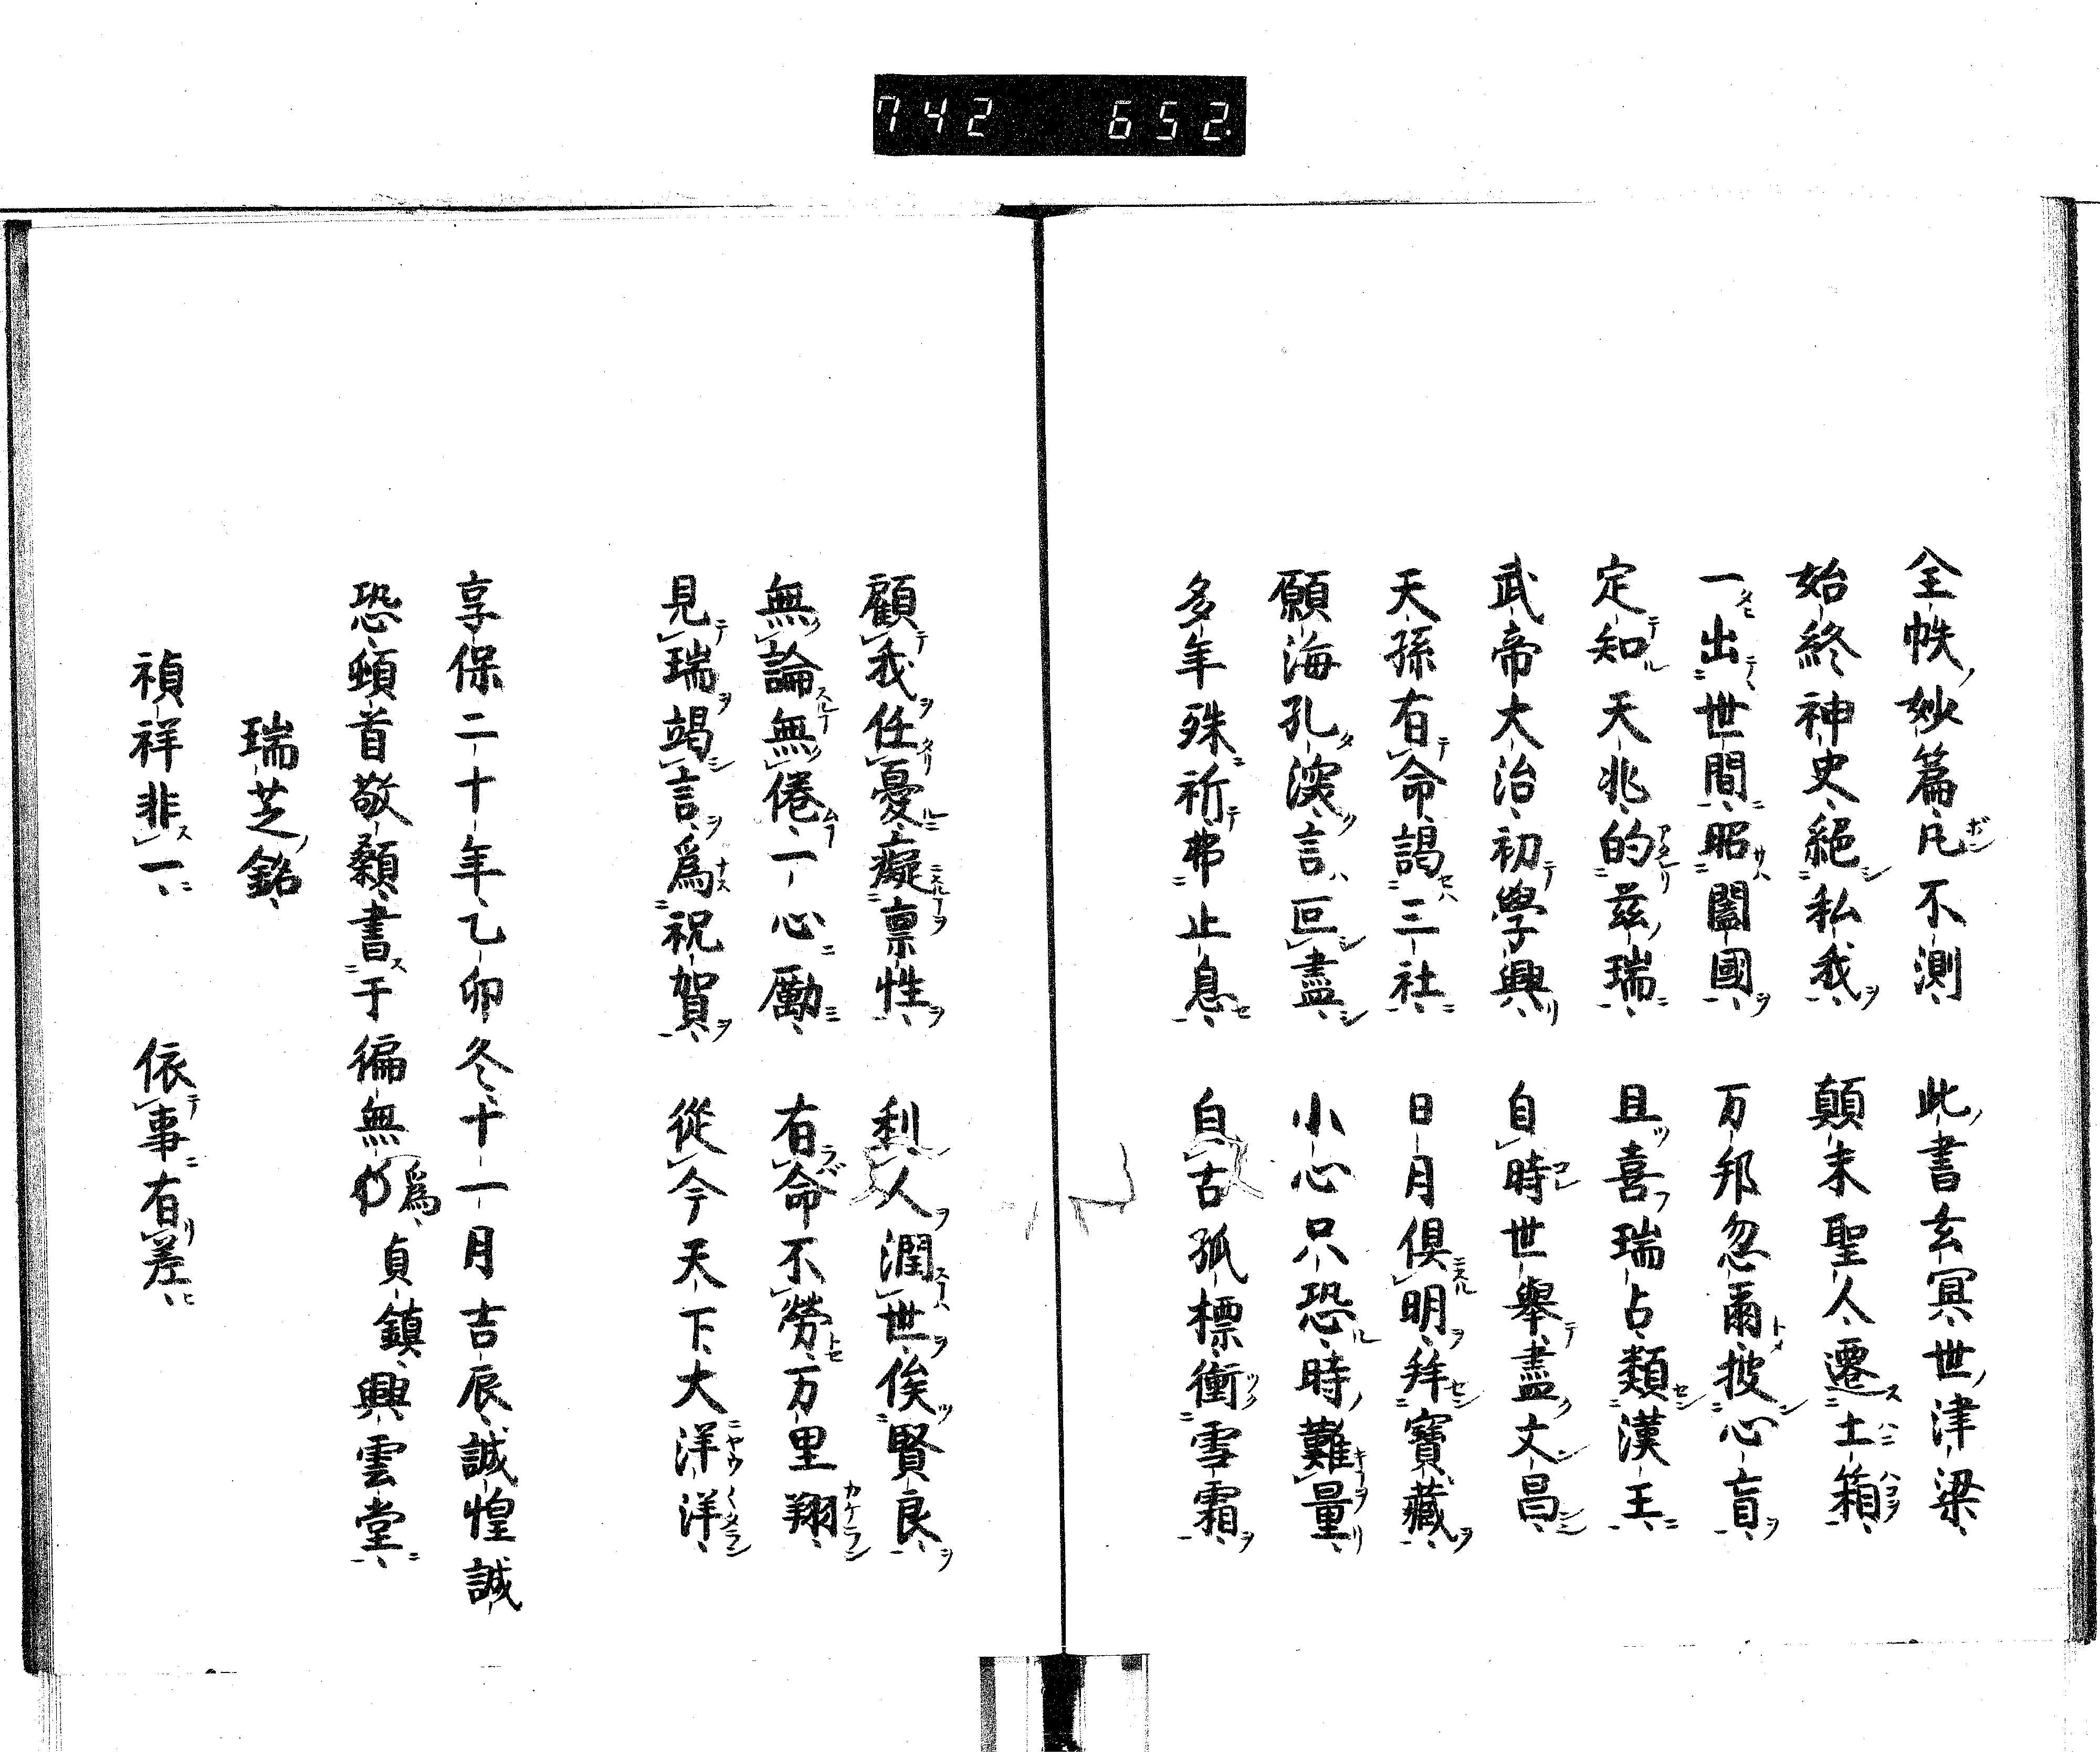 742 652.
全帙妙篇凡不測 此書玄冥世津梁
始終神史絕私我 顛末聖人遷土箱
一出世間昭闔國 万邦忽爾披心盲
定知天兆的茲瑞 且喜瑞占類漢王
武帝大治初學興 自時世舉盡文昌
天孫有命謁三社 日月俱明拜寶藏
願海孔深言叵盡 小心只恐時難量
多年殊祈弗止息 自古孤標衝雪霜
顧我任憂癡禀性 利人潤世俟賢良
無論無倦一心勵 有命不勞万里翔
見瑞竭言爲祝賀 從今天下大洋洋
享保二十年乙卯冬十一月吉辰誠惶誠
恐頓首敬顙書于徧無爲貞鎮興雲堂
瑞芝銘
禎祥非一 依事有差